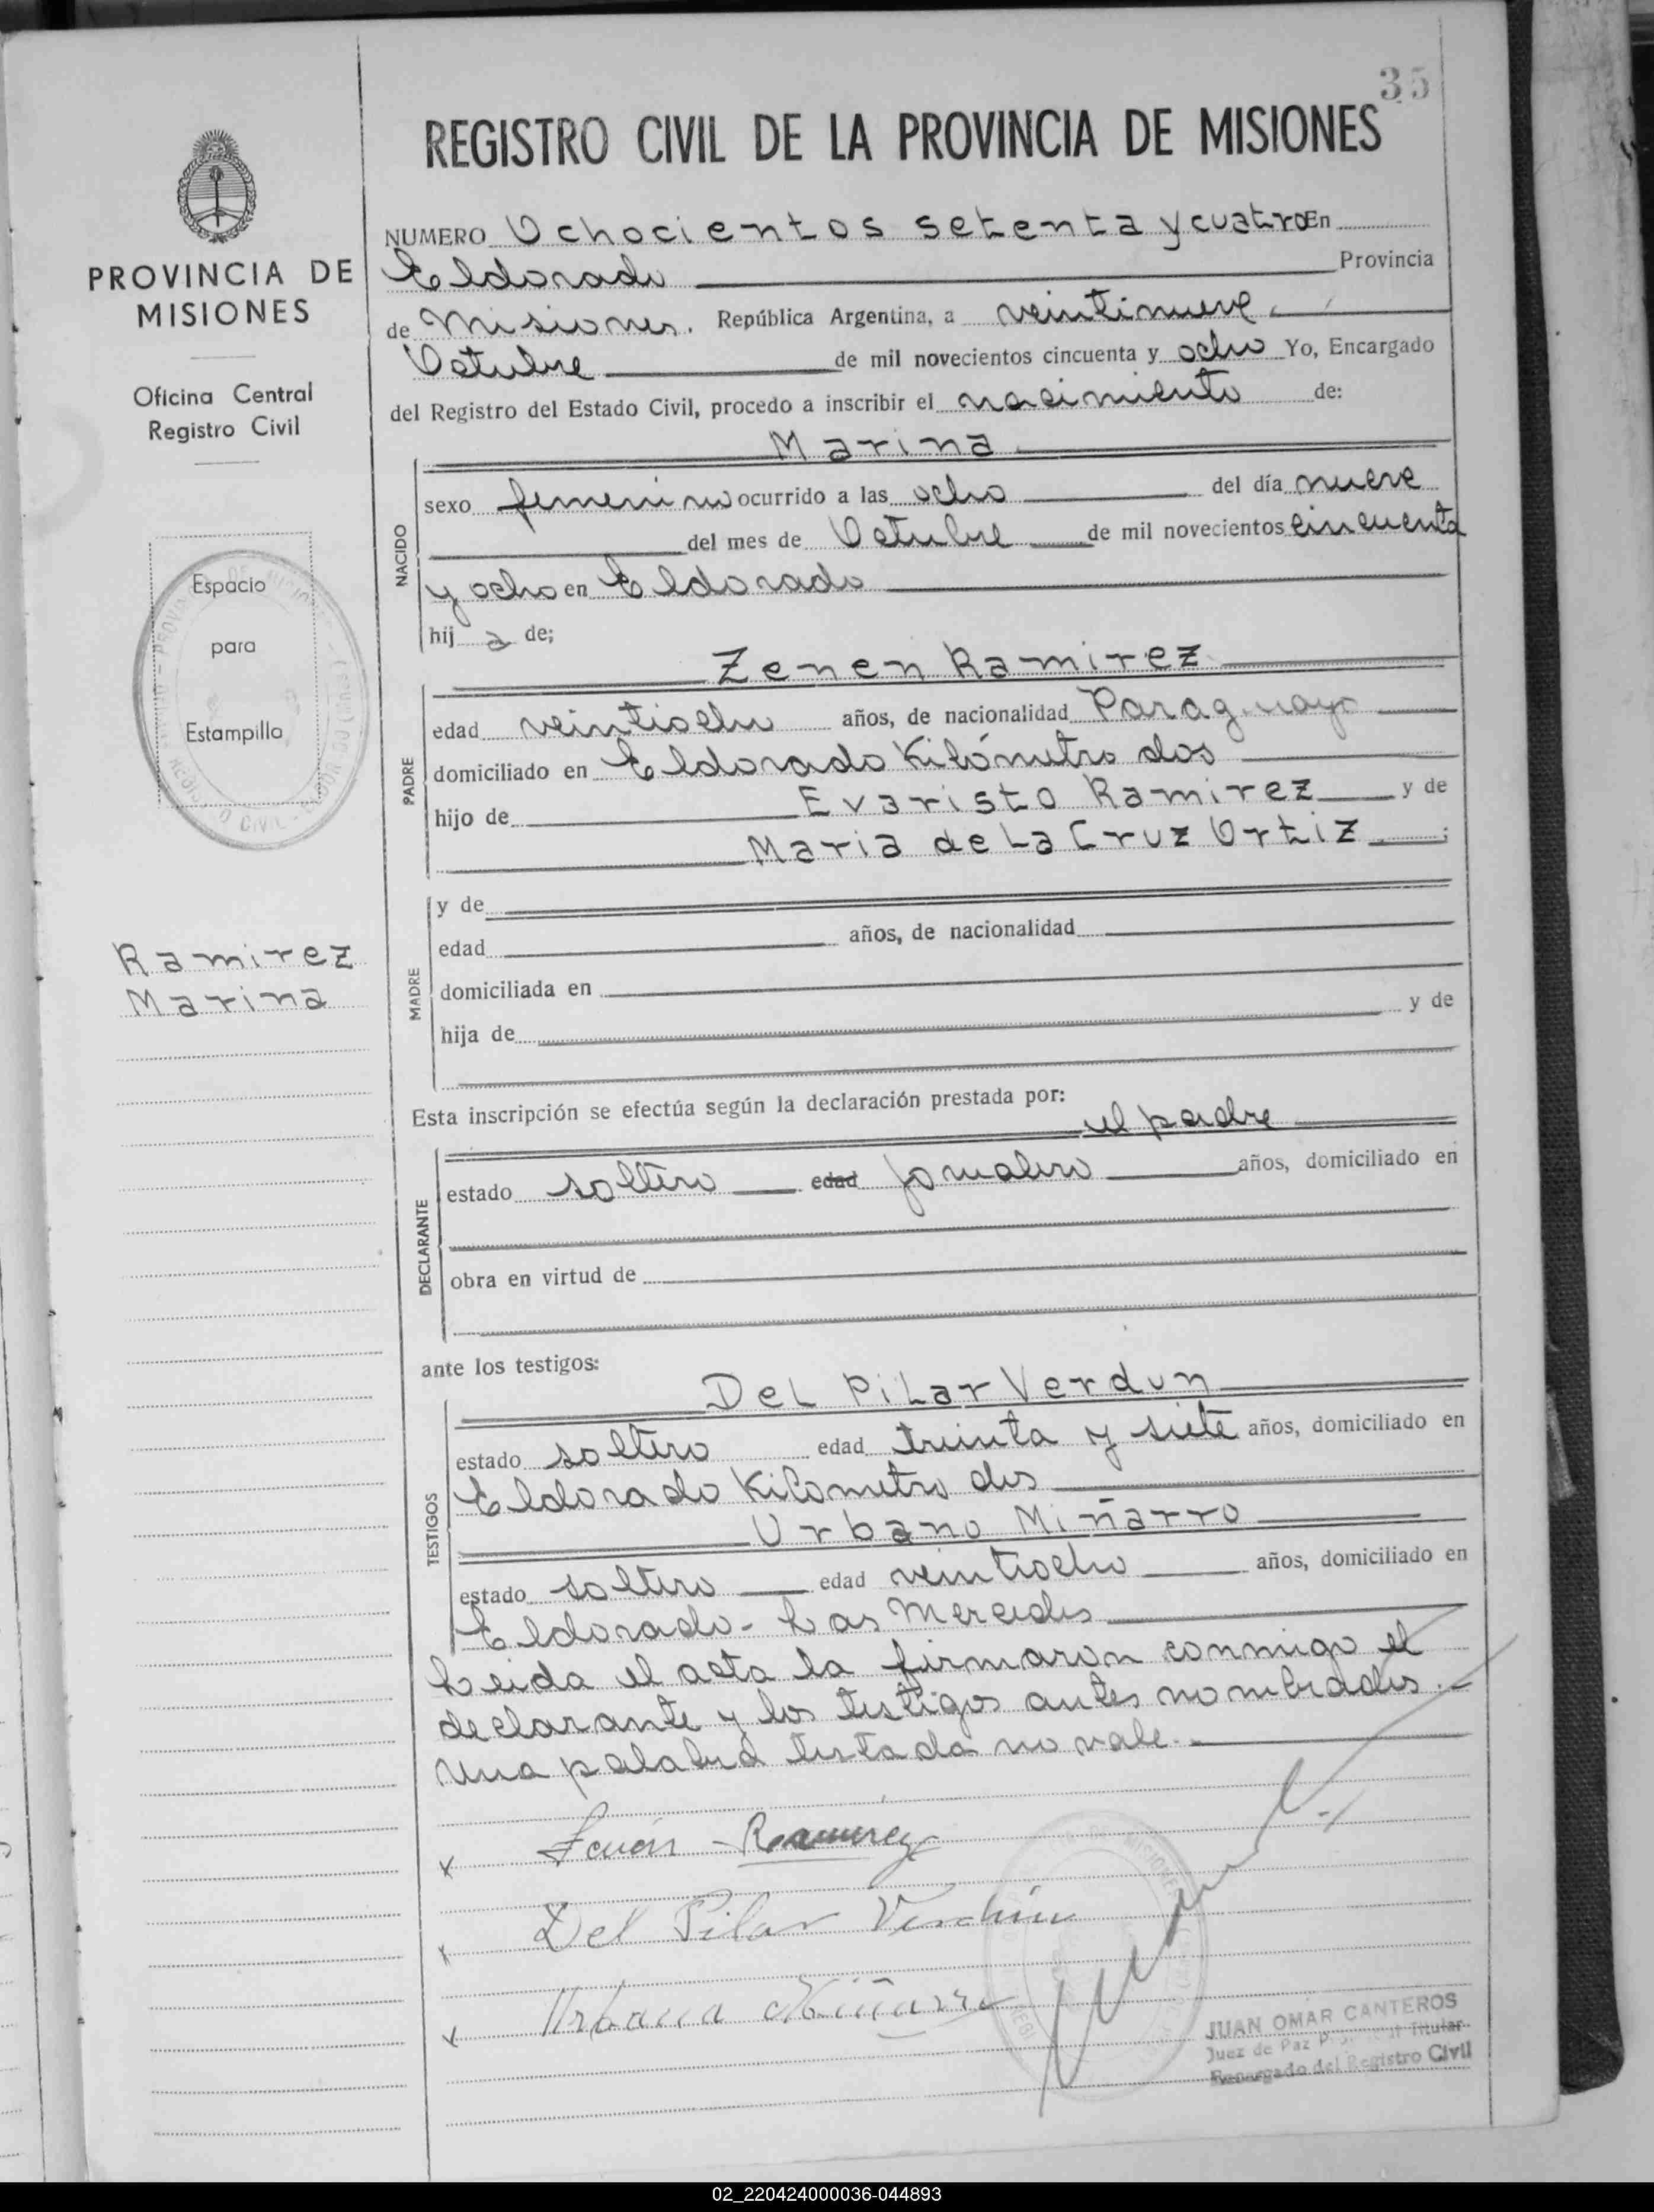 35
REGISTRO CIVIL DE LA PROVINCIA DE MISIONES
PROVINCIA DE
MISIONES
Oficina Central
Registro Civil
Espacio
para
Estampilla
Ramirez
Marina
NUMERO Ochocientos setenta y cuatro En
Eldorado Provincia
de Misiones. República Argentina, a veintinueve
Octubre de mil novecientos cincuenta y ocho Yo, Encargado
del Registro del Estado Civil, procedo a inscribir el nacimiento de:
Marina
NACIDO
sexo femenino ocurrido a las ocho del día nueve
del mes de Octubre de mil novecientos cincuenta
y ocho en Eldorado
hij a de;
Zenen Ramirez
PADRE
edad veintiocho años, de nacionalidad Paraguayo
domiciliado en Eldorado Kilómetro dos
hijo de Evaristo Ramirez y de
Maria de La Cruz Ortiz ;
MADRE
y de
edad años, de nacionalidad
domiciliada en
hija de y de
Esta inscripción se efectúa según la declaración prestada por:
el padre
DECLARANTE
estado soltero edad jornalero años, domiciliado en
obra en virtud de
ante los testigos:
Del Pilar Verdun
TESTIGOS
estado soltero edad treinta y siete años, domiciliado en
Eldorado Kilometro dos
Urbano Miñarro
estado soltero edad veintiocho años, domiciliado en
Eldorado - Las Mercedes
Leida el acta la firmaron conmigo el
declarante y los testigos antes nombrados.-
Una palabra testada no vale.-
x Ramirez
x Del Pilar Verdún
x Urbano Miñarro
JUAN OMAR CANTEROS
Juez de Paz Titular
Encargado del Registro Civil
02_220424000036-044893